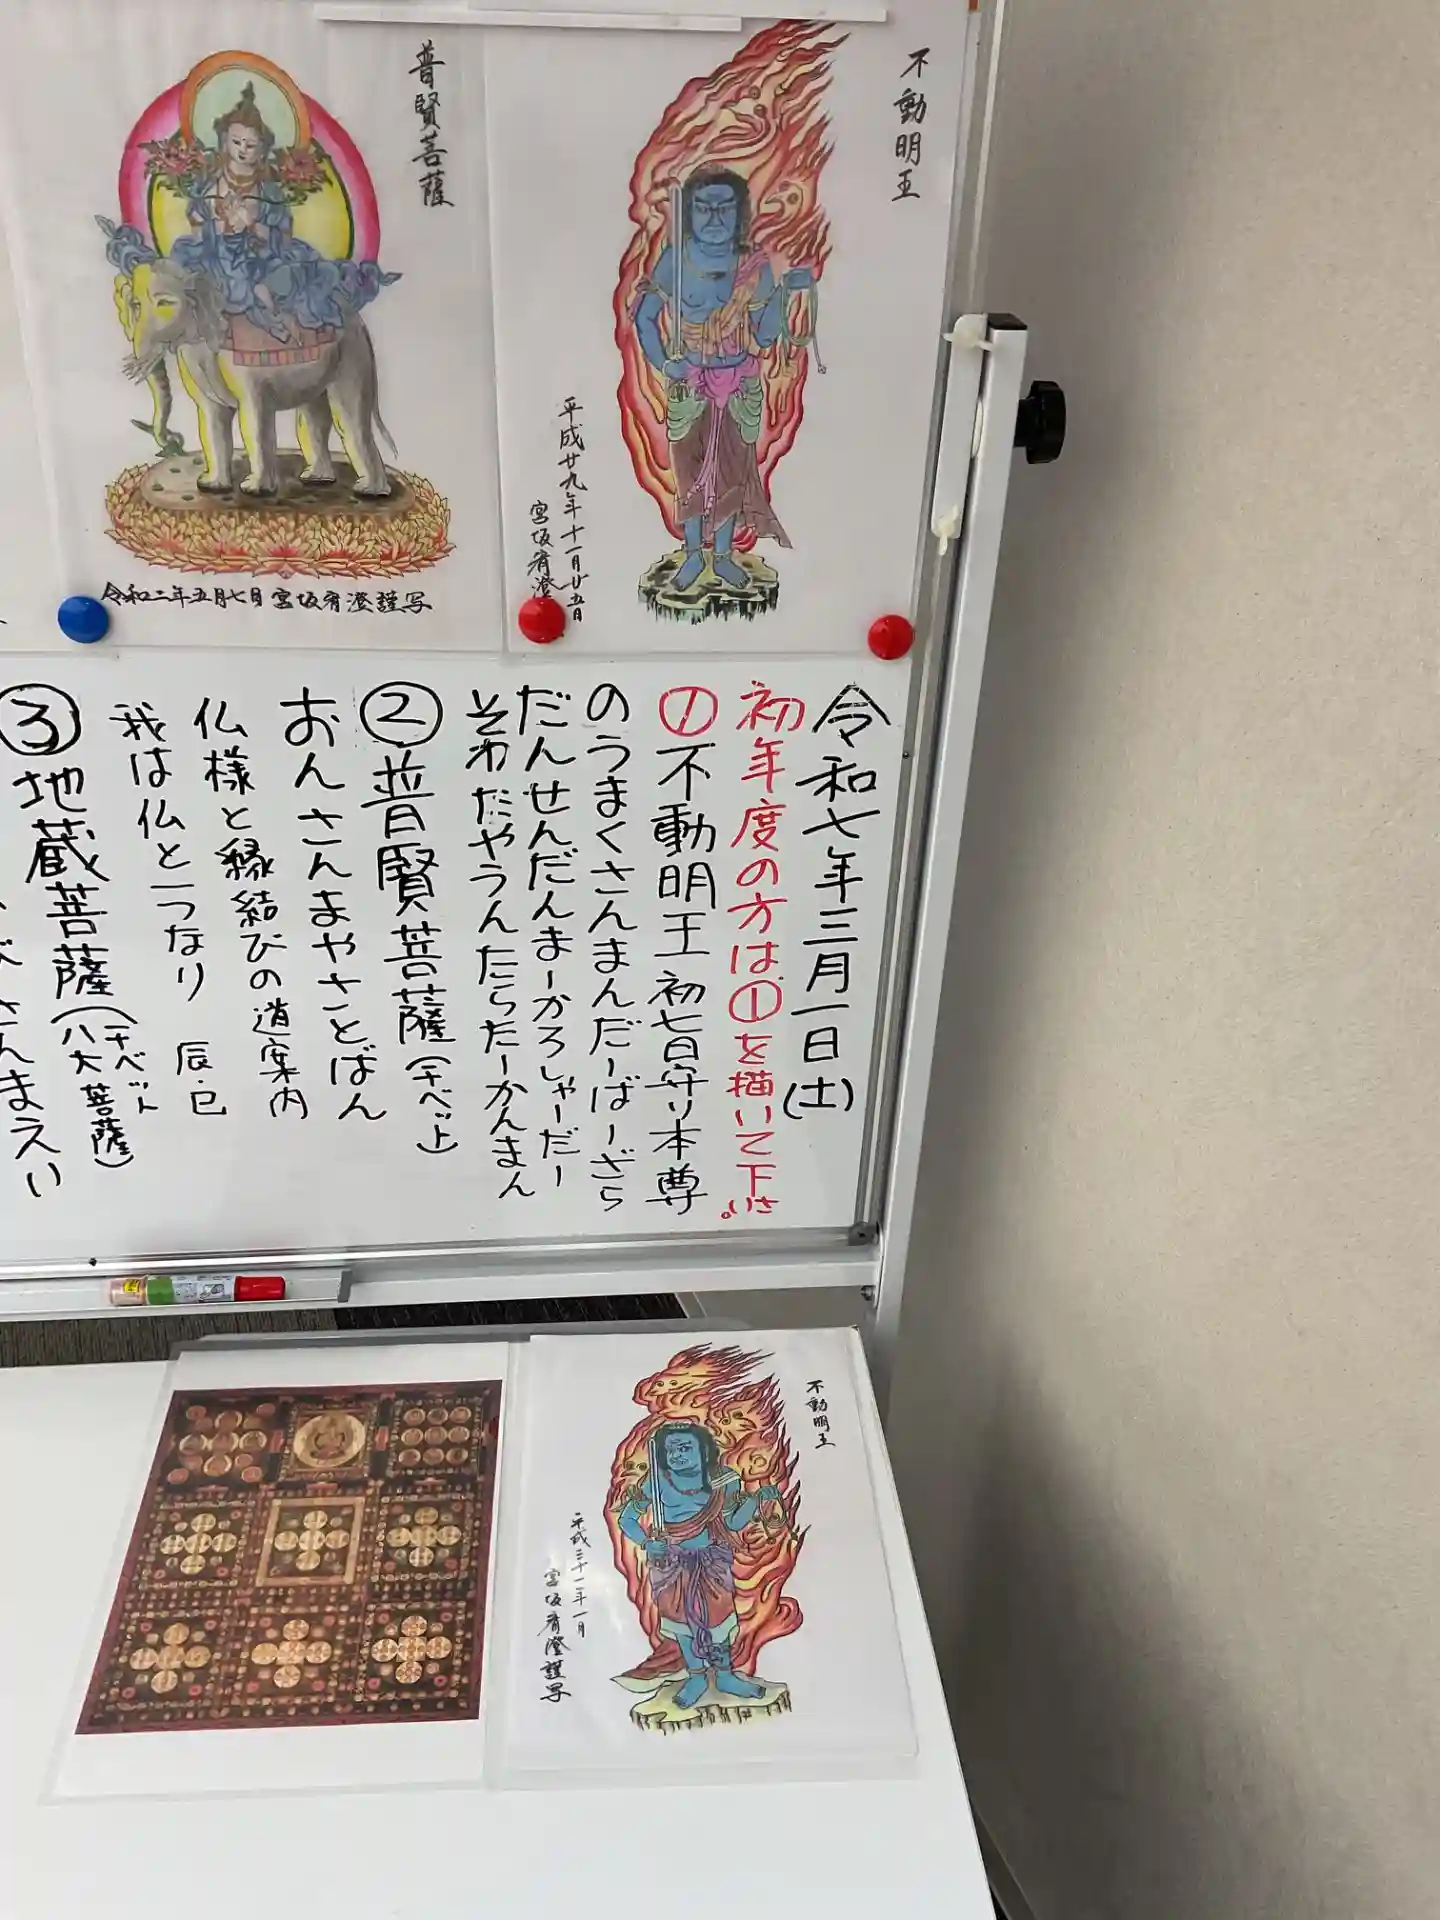 不動明王
平成廿九年十一月廿五日
宮坂宥澄
普賢菩薩
令和二年五月七日宮坂宥澄謹写
令和七年三月一日(土)
初年度の方は、①を描いて下さい。
①不動明王 初七日守り本尊
のうまくさんまんだーばーざら
だんせんだんまーかろしゃーだー
そわたやうんたらたーかんまん
②普賢菩薩(チベット)
おんさんまやさとばん
仏様と縁結びの道案内
我は仏と一つなり 辰・巳
③地蔵菩薩(チベット八大菩薩)
さんまえい
不動明王
平成三十一年一月
宮坂宥澄謹写